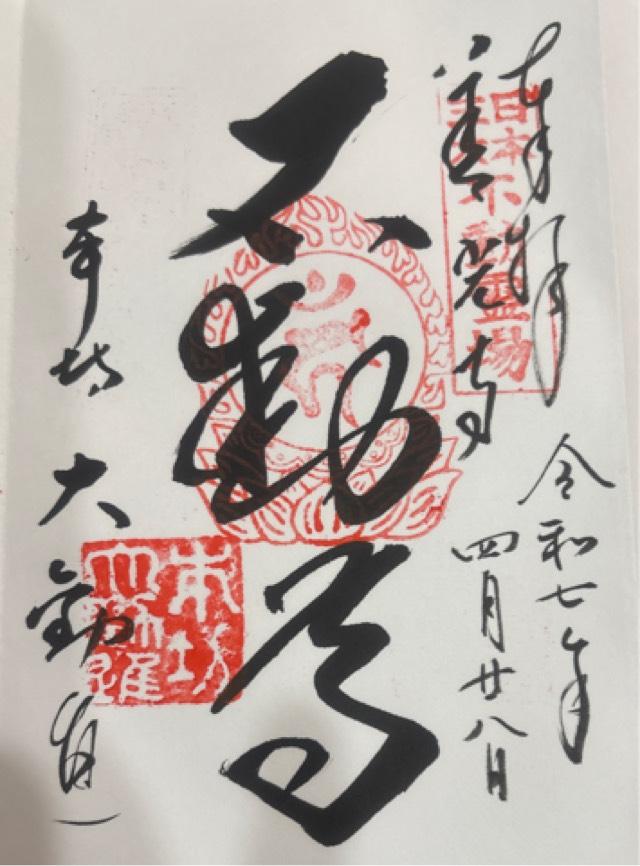 奉拝
令和七年
四月廿八日
善光寺
日本不動霊場
不動尊
本坊
本坊
大勧進